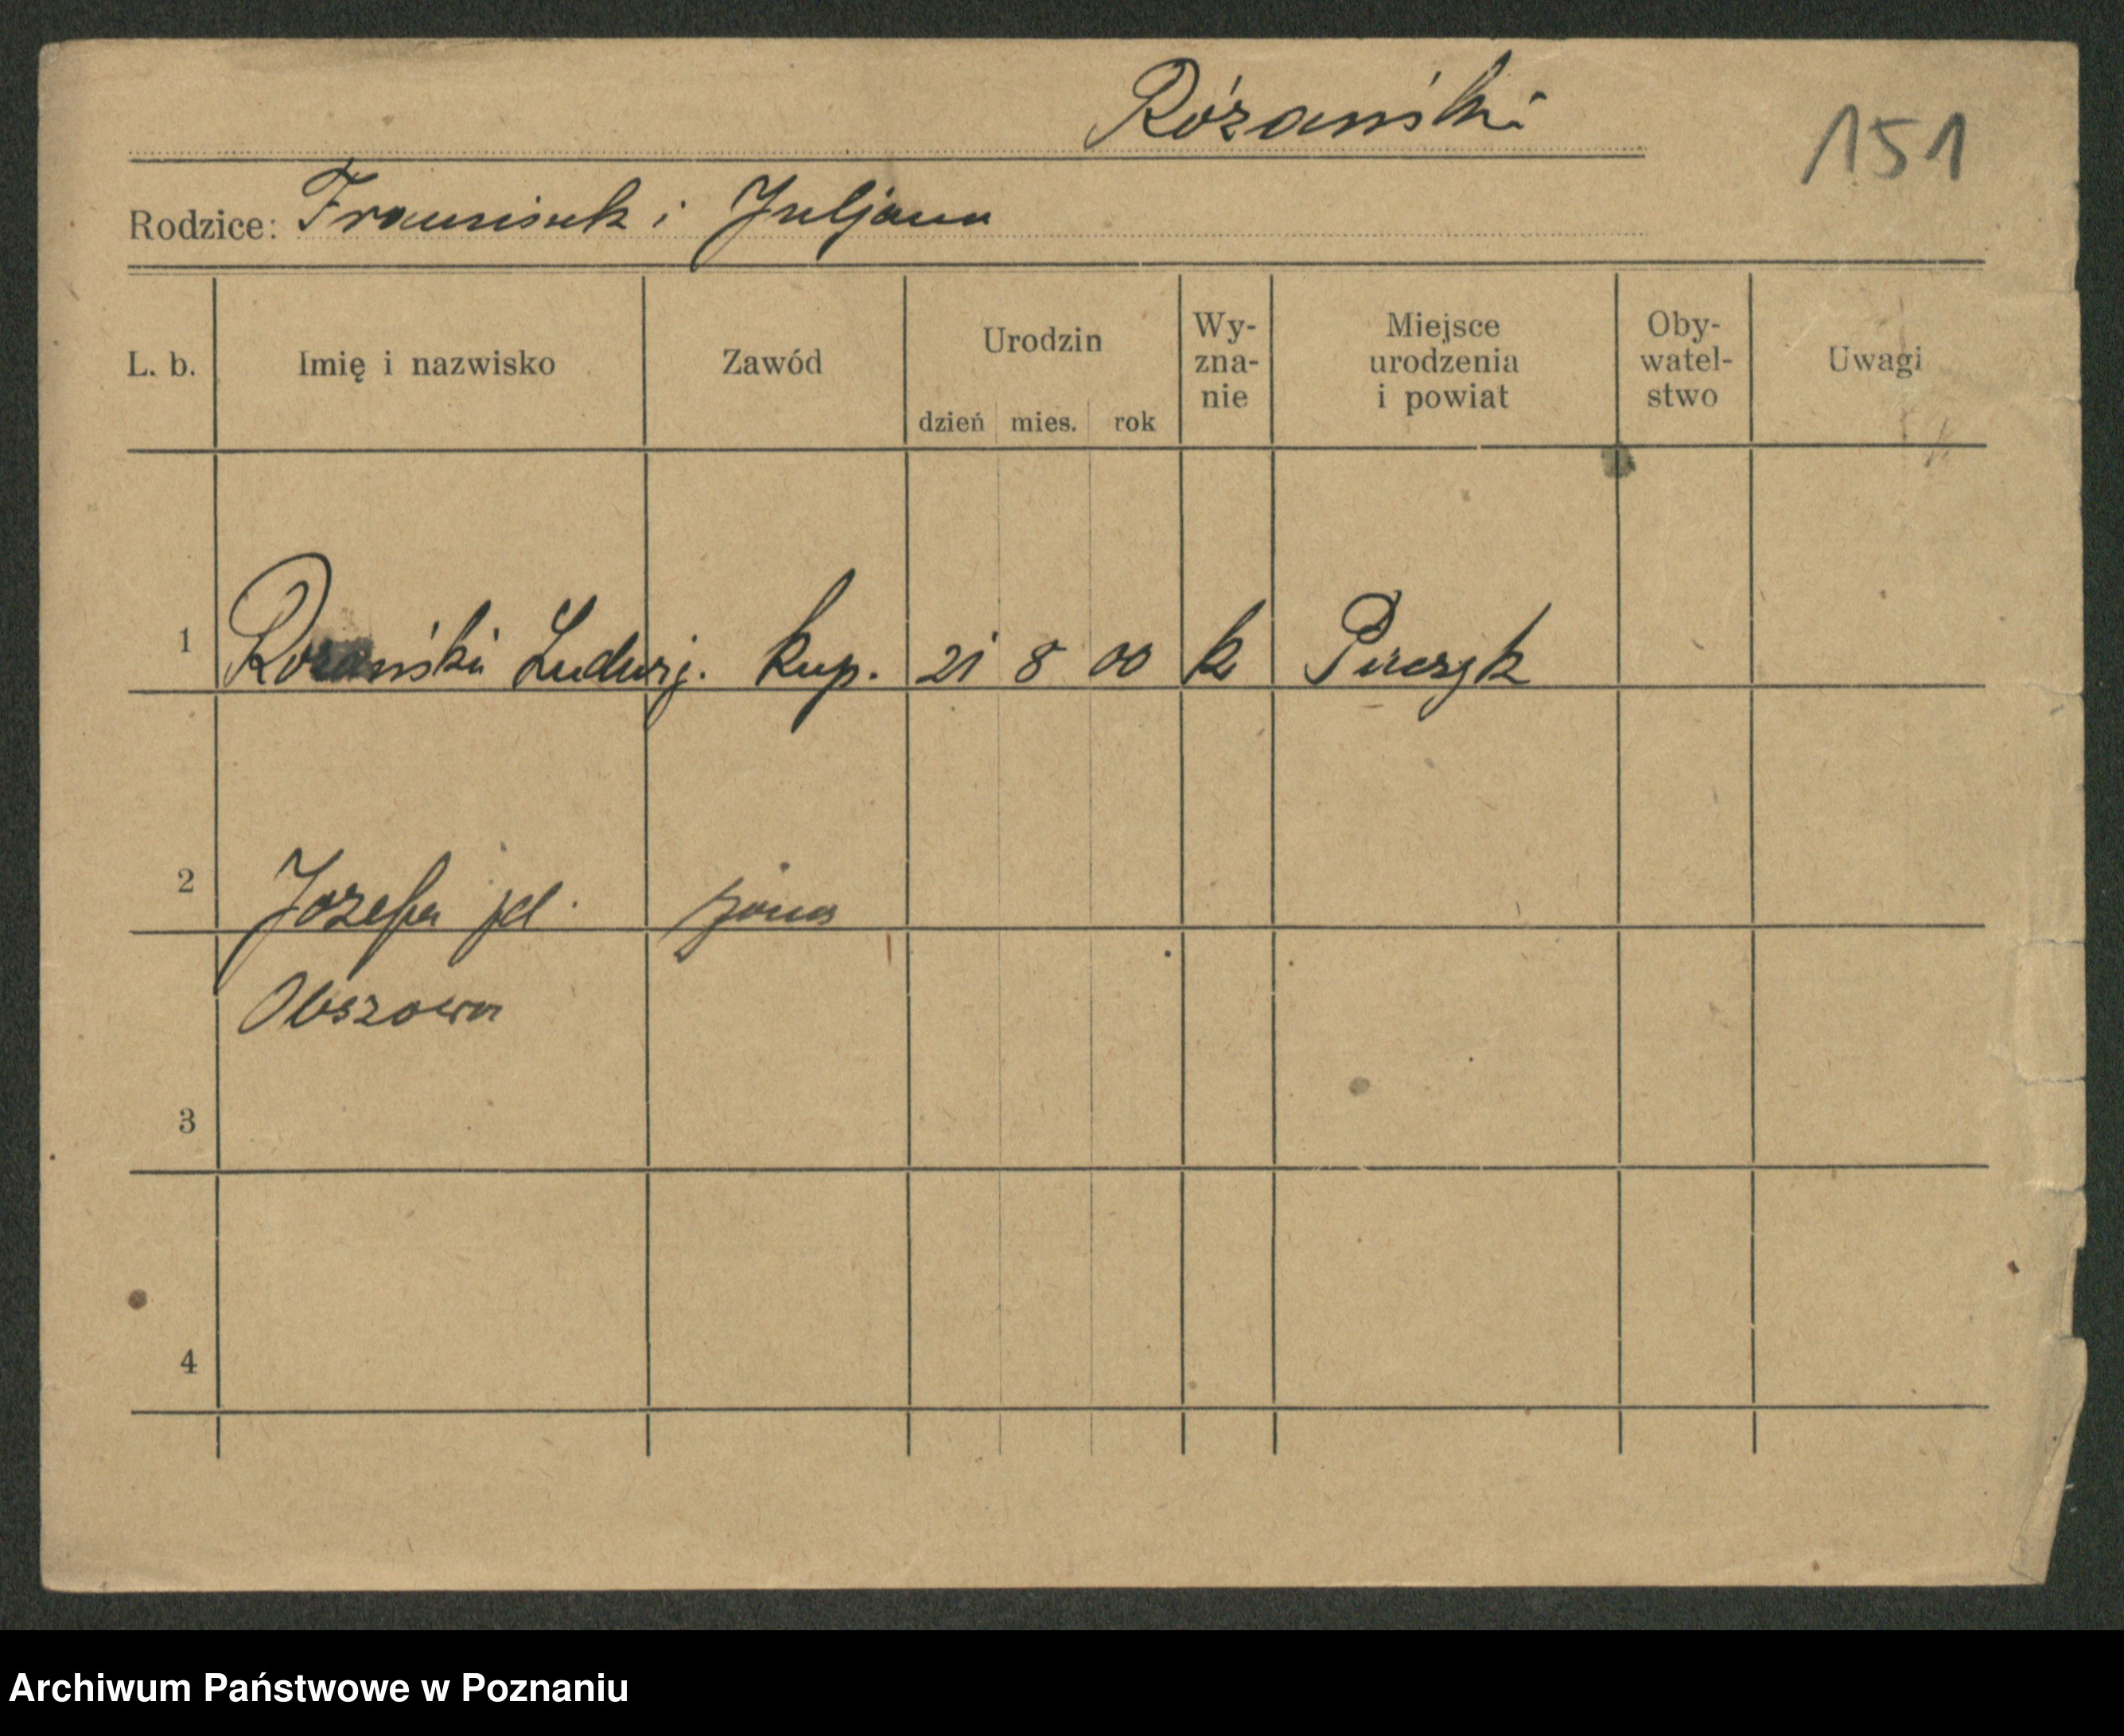 Różański
151
Rodzice: Franciszek i Juljana
L. b. Imię i nazwisko Zawód Urodzin dzień mies. rok Wy-zna-nie Miejsce urodzenia i powiat Oby-watel-stwo Uwagi
1 Rozański Ludwig. kup. 21 8 00 k
2 Józefa żona
3
4
Archiwum Państwowe w Poznaniu